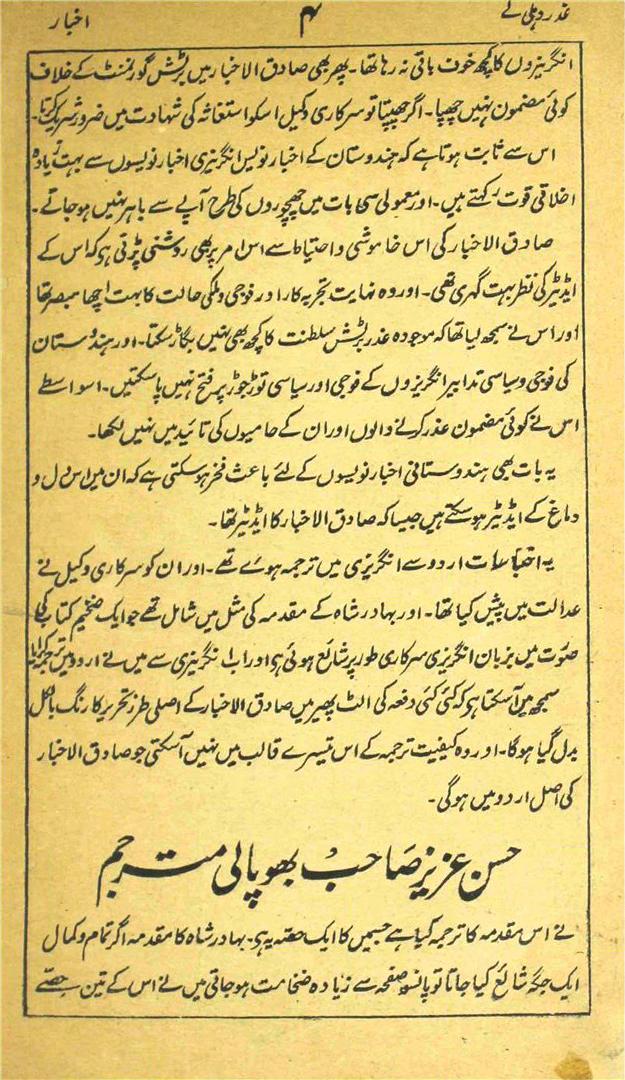 غدر دہلی کے ۴ اخبار
انگریزوں کا کچھ خوف باقی نہ رہا تھا۔ پھر بھی صادق الاخبار میں برٹش گورنمنٹ کے خلاف
کوئی مضمون نہیں چھپا۔ اگر چھپتا تو سرکاری وکیل اسکو استغاثہ کی شہادت میں ضرور شریک کرتا۔
اس سے ثابت ہوتا ہے کہ ہندوستان کے اخبار نویس انگریزی اخبار نویسوں سے بہت زیادہ
اخلاقی قوت رکھتے ہیں۔ اور معمولی سی بات میں چھچوروں کی طرح آپے سے باہر نہیں ہوجاتے۔
صادق الاخبار کی اس خاموشی و احتیاط سے اس امر پر بھی روشنی پڑتی ہی کہ اس کے
ایڈیٹر کی نظر بہت گہری تھی۔ اور وہ نہایت تجربہ کار اور فوجی و ملکی حالت کا بہت اچھا مبصر تھا
اور اس نے سمجھ لیا تھا کہ موجودہ غدر برٹش سلطنت کا کچھ بھی نہیں بگاڑ سکتا۔ اور ہندوستان
کی فوجی و سیاسی تدابیر انگریزوں کے فوجی اور سیاسی توڑ جوڑ پر فتح نہیں پا سکتیں۔ اسواسطے
اس نے کوئی مضمون غدر کرنے والوں اور ان کے حامیوں کی تائید میں نہیں لکھا۔
یہ بات بھی ہندوستانی اخبار نویسوں کے لئے باعث فخر ہو سکتی ہے کہ ان میں اس دل و
دماغ کے ایڈیٹر ہو سکتے ہیں جیسا کہ صادق الاخبار کا ایڈیٹر تھا۔
یہ اقتباسات اردو سے انگریزی میں ترجمہ ہوئے تھے۔ اور ان کو سرکاری وکیل نے
عدالت میں پیش کیا تھا۔ اور بہادر شاہ کے مقدمہ کی مثل میں شامل تھے جو ایک ضخیم کتاب کی
صورت میں بزبان انگریزی سرکاری طور پر شائع ہوئی ہی اور اب انگریزی سے میں نے اردو میں ترجمہ کرایا
سمجھ میں آسکتا ہی کہ کئی کئی دفعہ کی الٹ پھیر میں صادق الاخبار کے اصلی طرز تحریر کا رنگ بالکل
بدل گیا ہوگا۔ اور وہ کیفیت ترجمہ کے اس تیسرے قالب میں نہیں آسکتی جو صادق الاخبار
کی اصل اردو میں ہوگی۔
حسن عزیز صاحب بھوپالی مترجم
نے اس مقدمہ کا ترجمہ کیا ہے جسمیں کا ایک حصہ یہ ہی۔ بہادر شاہ کا مقدمہ اگر تمام و کمال
ایک جگہ شائع کیا جاتا تو پانسو صفحہ سے زیادہ ضخامت ہو جاتی میں نے اس کے تین حصے